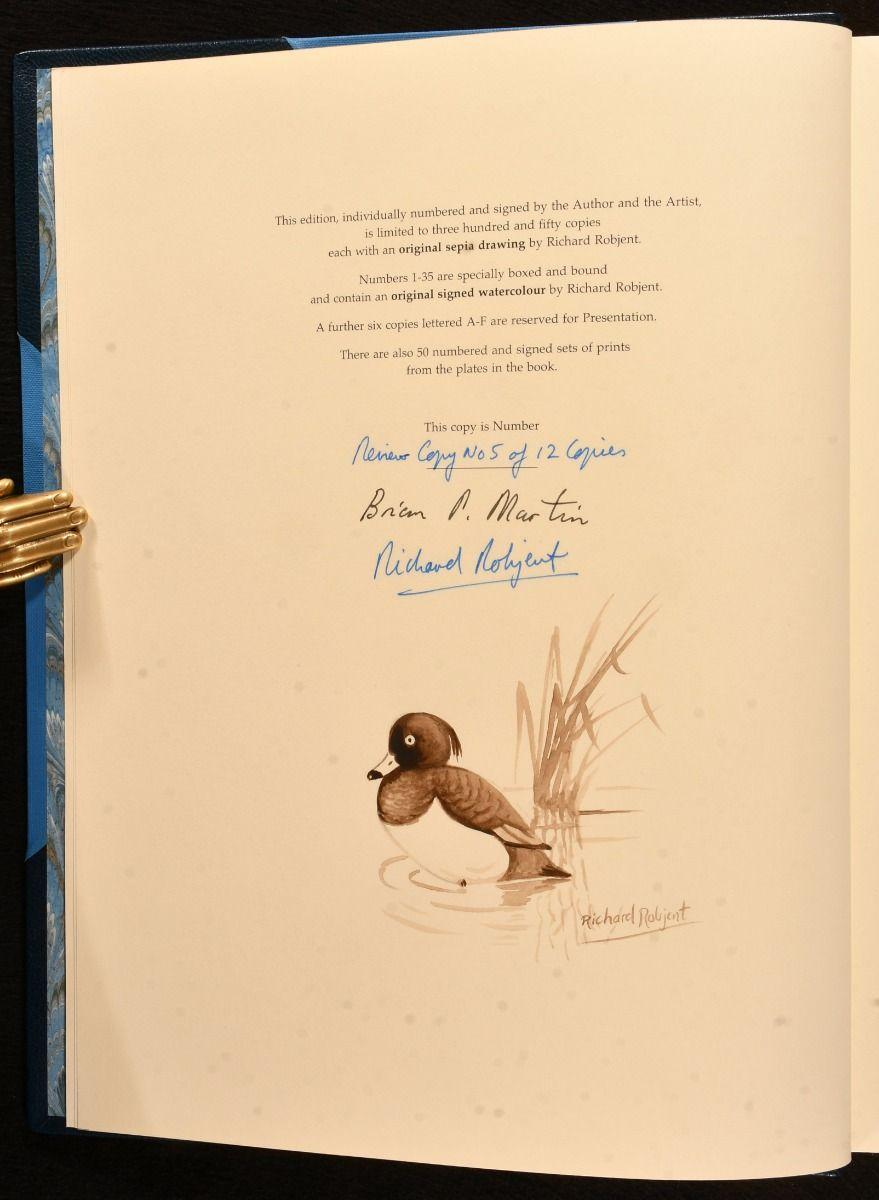 This edition, individually numbered and signed by the Author and the Artist,
is limited to three hundred and fifty copies
each with an original sepia drawing by Richard Robjent.
Numbers 1-35 are specially boxed and bound
and contain an original signed watercolour by Richard Robjent.
A further six copies lettered A-F are reserved for Presentation.
There are also 50 numbered and signed sets of prints
from the plates in the book.
This copy is Number
Review Copy No 5 of 12 Copies
Brian P. Martin
Richard Robjent
Richard Robjent